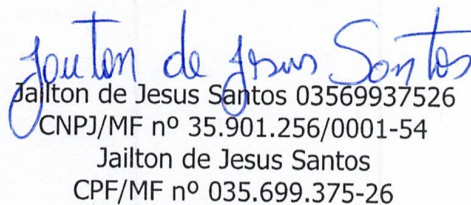 Jailton de Jesus Santos
Jailton de Jesus Santos 03569937526
CNPJ/MF nº 35.901.256/0001-54
Jailton de Jesus Santos
CPF/MF nº 035.699.375-26